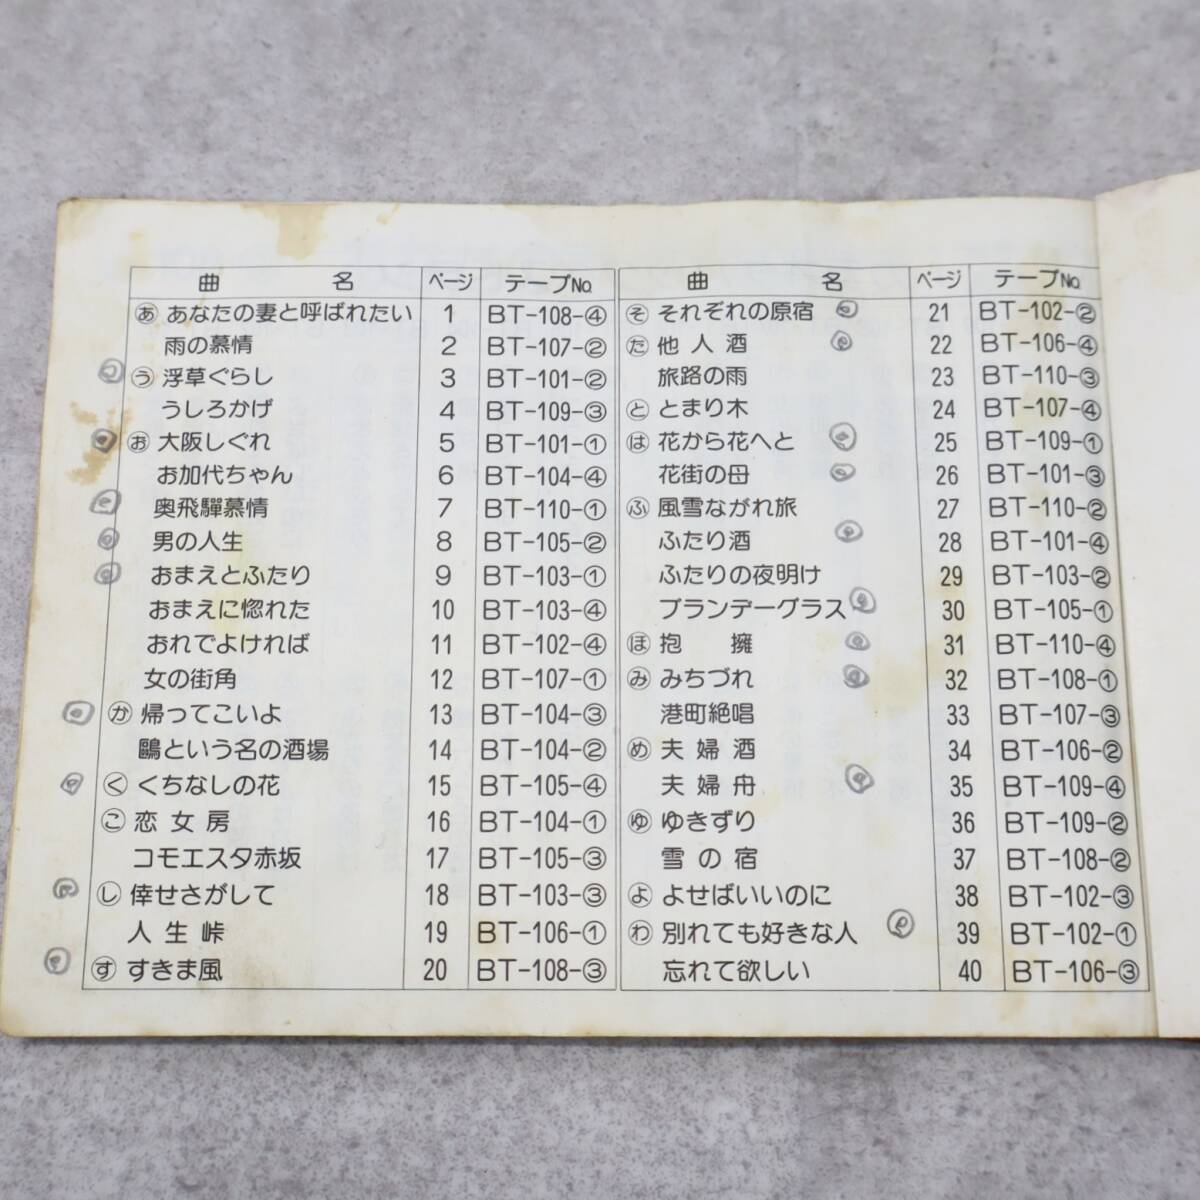 曲 名 ページ テープNo.
あ あなたの妻と呼ばれたい 1 BT-108-④
雨の慕情 2 BT-107-②
う 浮草ぐらし 3 BT-101-②
うしろかげ 4 BT-109-③
お 大阪しぐれ 5 BT-101-①
お加代ちゃん 6 BT-104-④
奥飛騨慕情 7 BT-110-①
男の人生 8 BT-105-②
おまえとふたり 9 BT-103-①
おまえに惚れた 10 BT-103-④
おれでよければ 11 BT-102-④
女の街角 12 BT-107-①
か 帰ってこいよ 13 BT-104-③
鷗という名の酒場 14 BT-104-②
く くちなしの花 15 BT-105-④
こ 恋女房 16 BT-104-①
コモエスタ赤坂 17 BT-105-③
し 倖せさがして 18 BT-103-③
人生峠 19 BT-106-①
す すきま風 20 BT-108-③
曲 名 ページ テープNo.
そ それぞれの原宿 21 BT-102-②
た 他人酒 22 BT-106-④
旅路の雨 23 BT-110-③
と とまり木 24 BT-107-④
は 花から花へと 25 BT-109-①
花街の母 26 BT-101-③
ふ 風雪ながれ旅 27 BT-110-②
ふたり酒 28 BT-101-④
ふたりの夜明け 29 BT-103-②
ブランデーグラス 30 BT-105-①
ほ 抱擁 31 BT-110-④
み みちづれ 32 BT-108-①
港町絶唱 33 BT-107-③
め 夫婦酒 34 BT-106-②
夫婦舟 35 BT-109-④
ゆ ゆきずり 36 BT-109-②
雪の宿 37 BT-108-②
よ よせばいいのに 38 BT-102-③
わ 別れても好きな人 39 BT-102-①
忘れて欲しい 40 BT-106-③